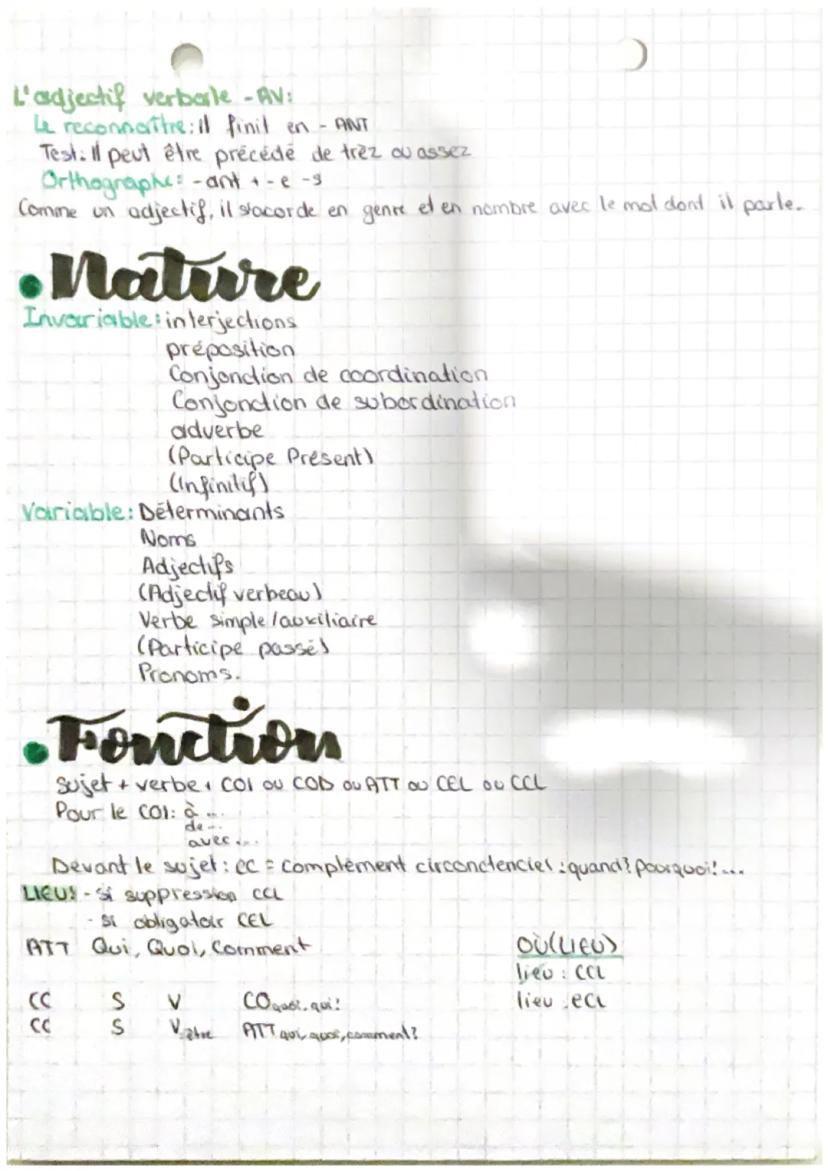 L'adjectif verbale - AV:
Le reconnaître: il finit en - ANT
Test: il peut être précédé de trèz ou assez
Orthographe: - ant + - e - s
Comme un adjectif, il s'acorde en genre et en nombre avec le mot dont il parle.
• Nature
Invariable: interjections
préposition
Conjonction de coordination
Conjonction de subordination
adverbe
(Participe Présent)
(Infinitif)
Variable: Déterminants
Noms
Adjectifs
(Adjectif verbeau)
Verbe simple/auxiliaire
(Participe passé)
Pronoms.
• Fonction
Sujet + verbe + COI ou COD ou ATT ou CEL ou CCL
Pour le COI: à ...
de...
avec ...
Devant le sujet: CC = complément circonctenciel: quand? pourquoi? ...
LIEU: - si suppression CCL
- si obligatoir CEL
ATT Qui, Quoi, Comment
OÙ (LIEU)
lieu : CCL
CC S V CO quoi, qui?
lieu : eCL
CC S V être ATT qui, quoi, comment?